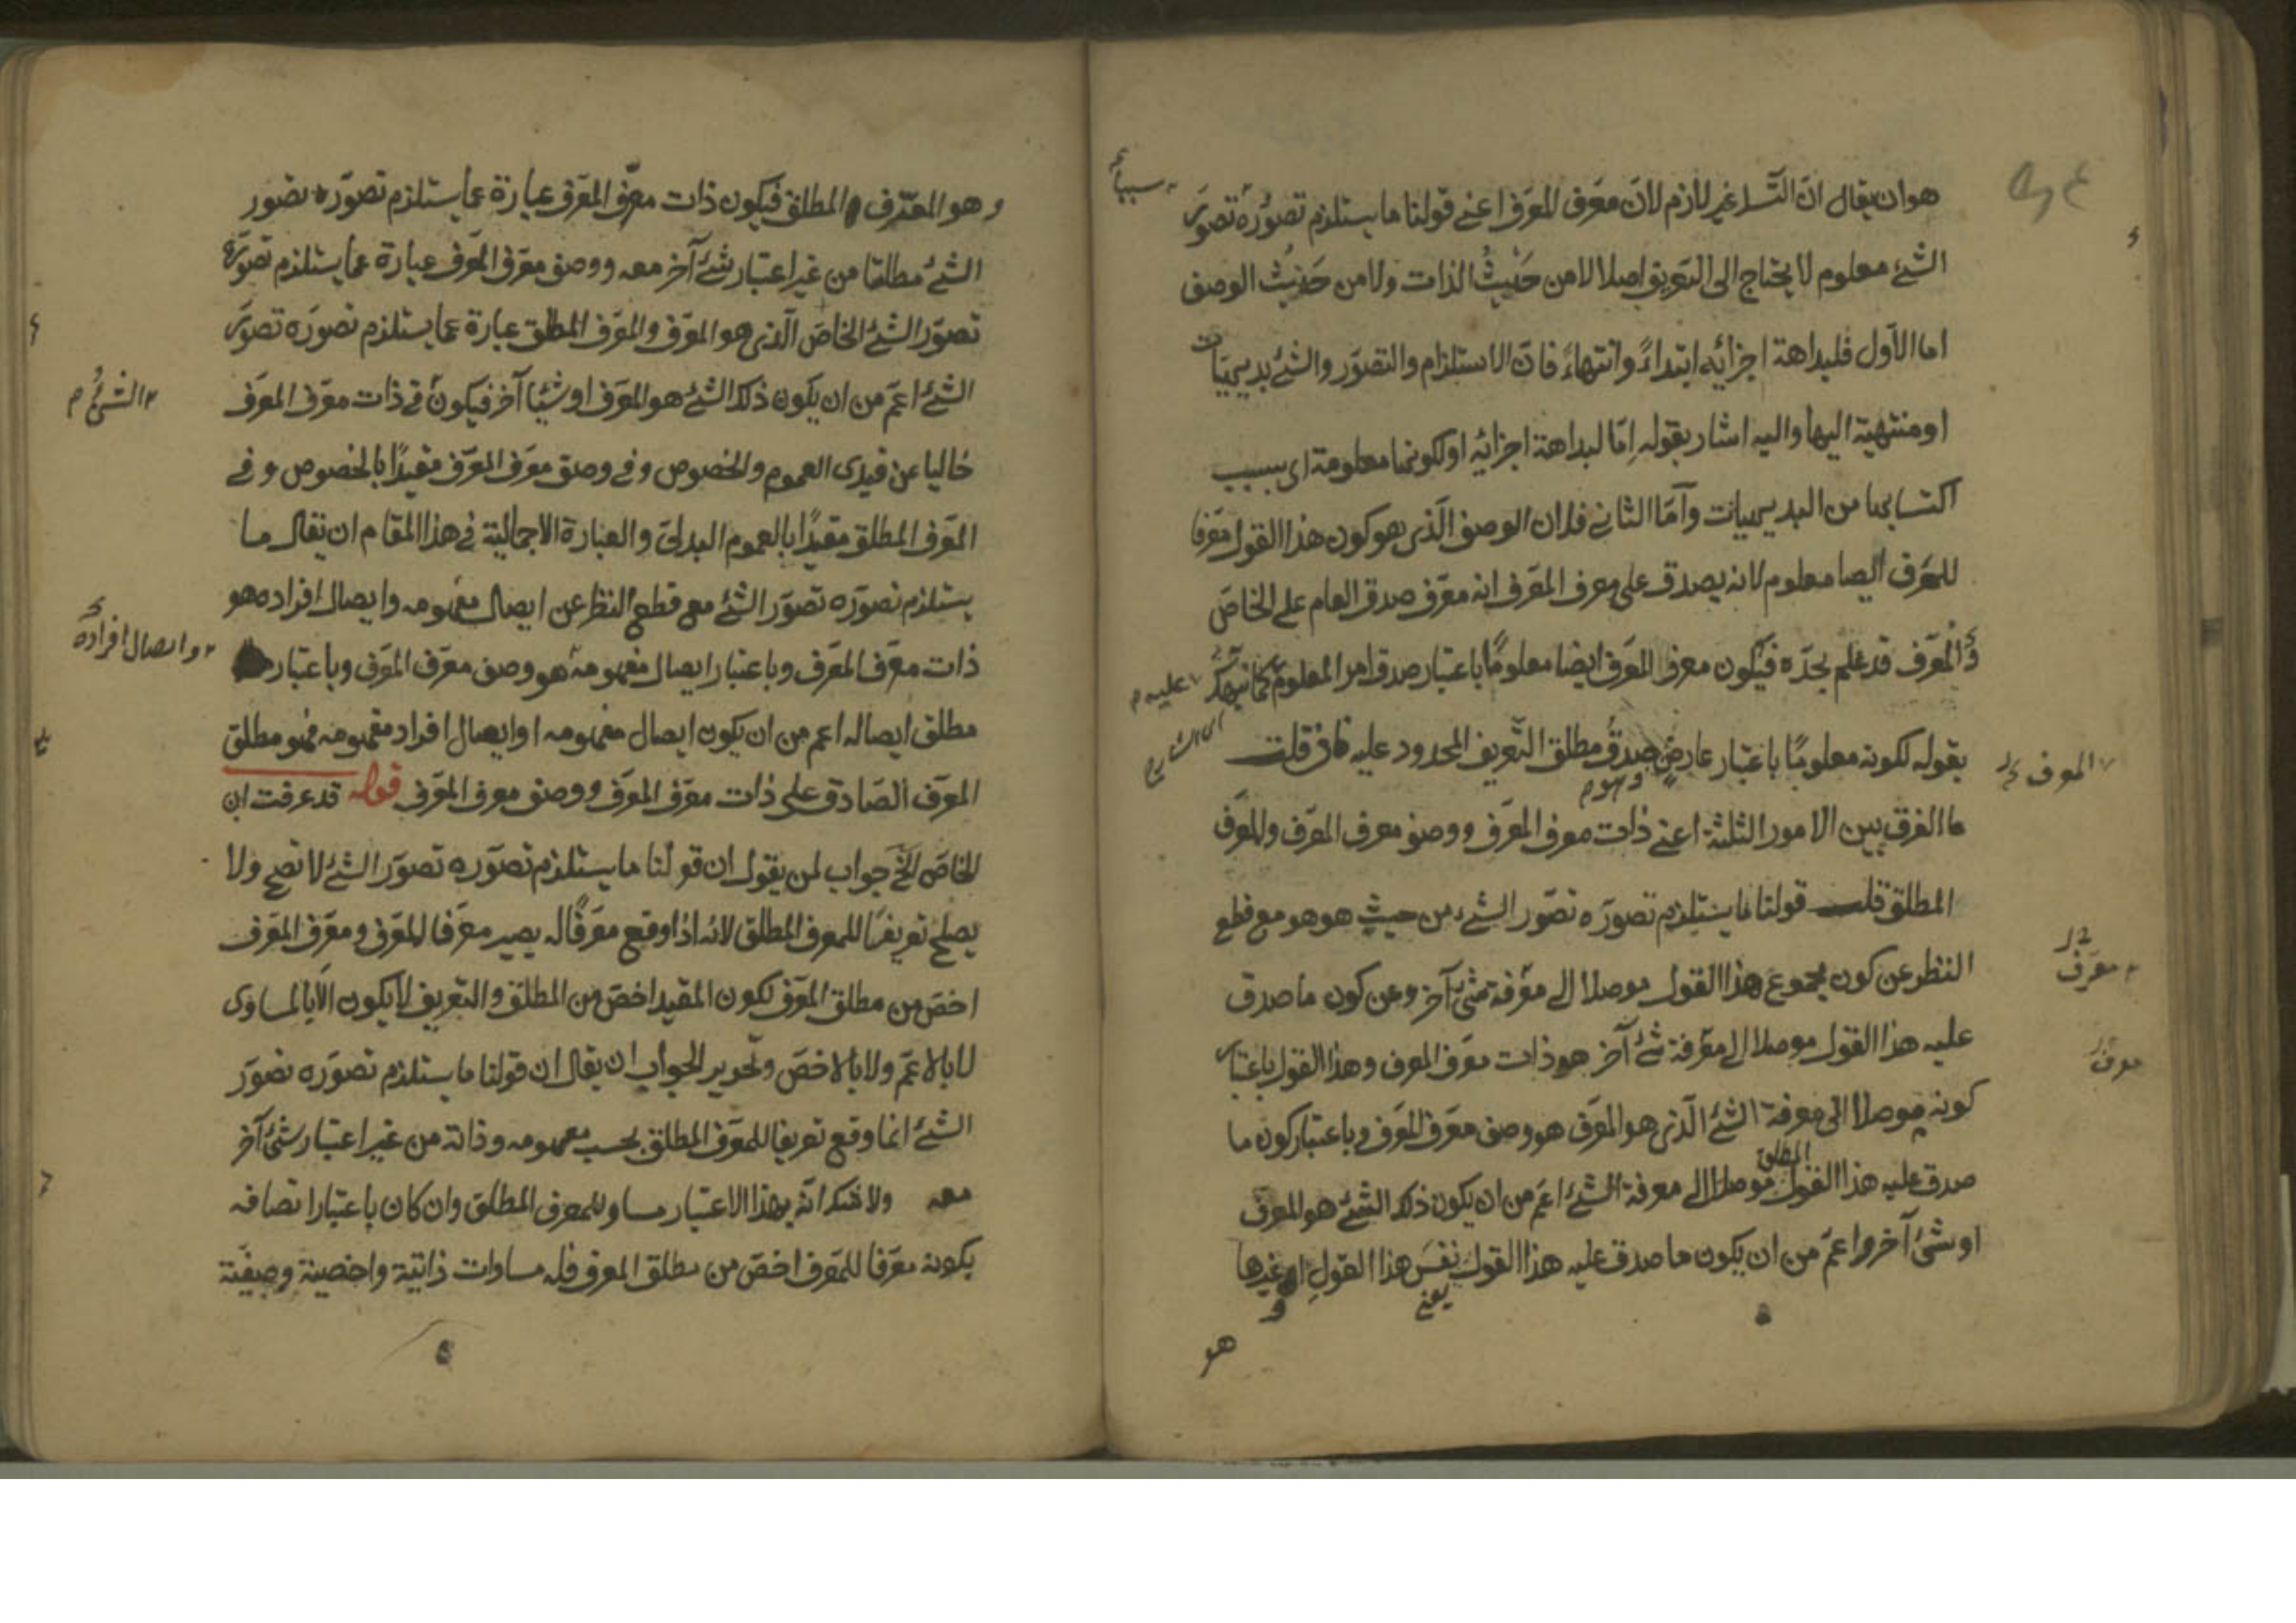 هو ان يقال ان التسلـ غير لازم لان معرف المعرف اعنى قولنا ما يستلزم تصوره تصور
الشئ معلوم لا يحتاج الى التعريف اصلا لا من حيث الذات ولا من حيث الوصف
اما الاول فلبداهة اجزائه ابتداءً وانتهاءً فان الاستلزام والتصور والشئ بديهيات
او منتهية اليها واليه اشار بقوله اِمّا لبداهة اجزائه او لكونها معلومة اى بسبب
اكتسابها من البديهيات وآمّا الثانى فلان الوصف الّذى هو كون هذا القول معرفا
للمعرف ايضا معلوم لانه يصدق على معرف المعرف انه معرّف صدق العام على الخاصّ
والمعرّف قد علم بحدّه فيكون معرف المعرف ايضا معلومًا باعتبار صدق امر المعلوم
عليه م
بقوله لكونه معلومًا باعتبار عارضٍ صدق مطلق التعريف المحدود عليه فان قلت
وهو م
المعرف
ما الفرق بين الامور الثلثة اعنى ذات معرف المعرف ووصف معرف المعرف والمعرف
المطلق قلت قولنا ما يستلزم تصوره تصوّر الشئ من حيث هو هو مع قطع
النظر عن كون مجموع هذا القول موصلا الى معرفة شئ آخر وعن كون ما صدق
معرف
عليه هذا القول موصلا الى معرفة شئ آخر هو ذات معرف المعرف وهذا القول باعتبار
معرف
كونه موصلا الى معرفة الشئ الّذى هو المعرف هو وصف معرف المعرف وباعتبار كون ما
المطلق
صدق عليه هذا القول موصلا الى معرفة الشئ اعمّ من ان يكون ذلك الشئ هو المعرف
او شئ آخر واعمّ من ان يكون ما صدق عليه هذا القول نفس هذا القولِ او غيرها
يعنى
هو
وهو المعرّف المطلق فيكون ذات معرّف المعرف عبارة عما يستلزم تصوّره تصور
الشئ مطلقا من غير اعتبار شئ آخر معه ووصف معرف المعرف عبارة عما يستلزم تصوره
تصوّر الشئ الخاصّ الّذى هو المعرف والمعرف المطلق عبارة عما يستلزم تصوّره تصور
الشئ اعمّ من ان يكون ذلك الشئ هو المعرف او شيئا آخر فيكون فى ذات معرف المعرف
الشئ م
خاليا عن قيدى العموم والخصوص وفى وصف معرف المعرّف مقيدًا بالخصوص وفى
المعرف المطلق مقيدًا بالعموم البدلى والعبارة الاجمالية فى هذا المقام ان يقال ما
يستلزم تصوّره تصوّر الشئ مع قطع النظر عن ايصال مفهومه وايصال افراده هو
ذات معرف المعرف وباعتبار ايصال مفهومه هو وصف معرف المعرف وباعتبار
وايصال افراده
مطلق ايصاله اعم من ان يكون ايصال مفهومه او ايصال افراد مفهومه فهو مطلق
المعرّف الصّادق على ذات معرف المعرف ووصف معرف المعرف قوله قد عرفت ان
الخاصّ الخ جواب لمن يقول ان قولنا ما يستلزم تصوّره تصوّر الشئ لا تصح ولا
يصلح تعريفًا للمعرف المطلق لانه اذا وقع معرفًا له يصير معرفا للمعرف ومعرف المعرف
اخصّ من مطلق المعرف لكون المقيد اخصّ من المطلق والتعريف لا يكون الاّ بالمساوى
لا بالاعمّ ولا بالاخصّ وتحرير الجواب ان يقال ان قولنا ما يستلزم تصوّره تصوّر
الشئ انما وقع تعريفا للمعرف المطلق بحسب مفهومه وذاته من غير اعتبار شئ آخر
معه ولا شك انّه بهذا الاعتبار مساو للمعرف المطلق وان كان باعتبار اتصافه
بكونه معرّفا للمعرف اخصّ من مطلق المعرف فله مساوات ذاتية واخصية وصفيّة